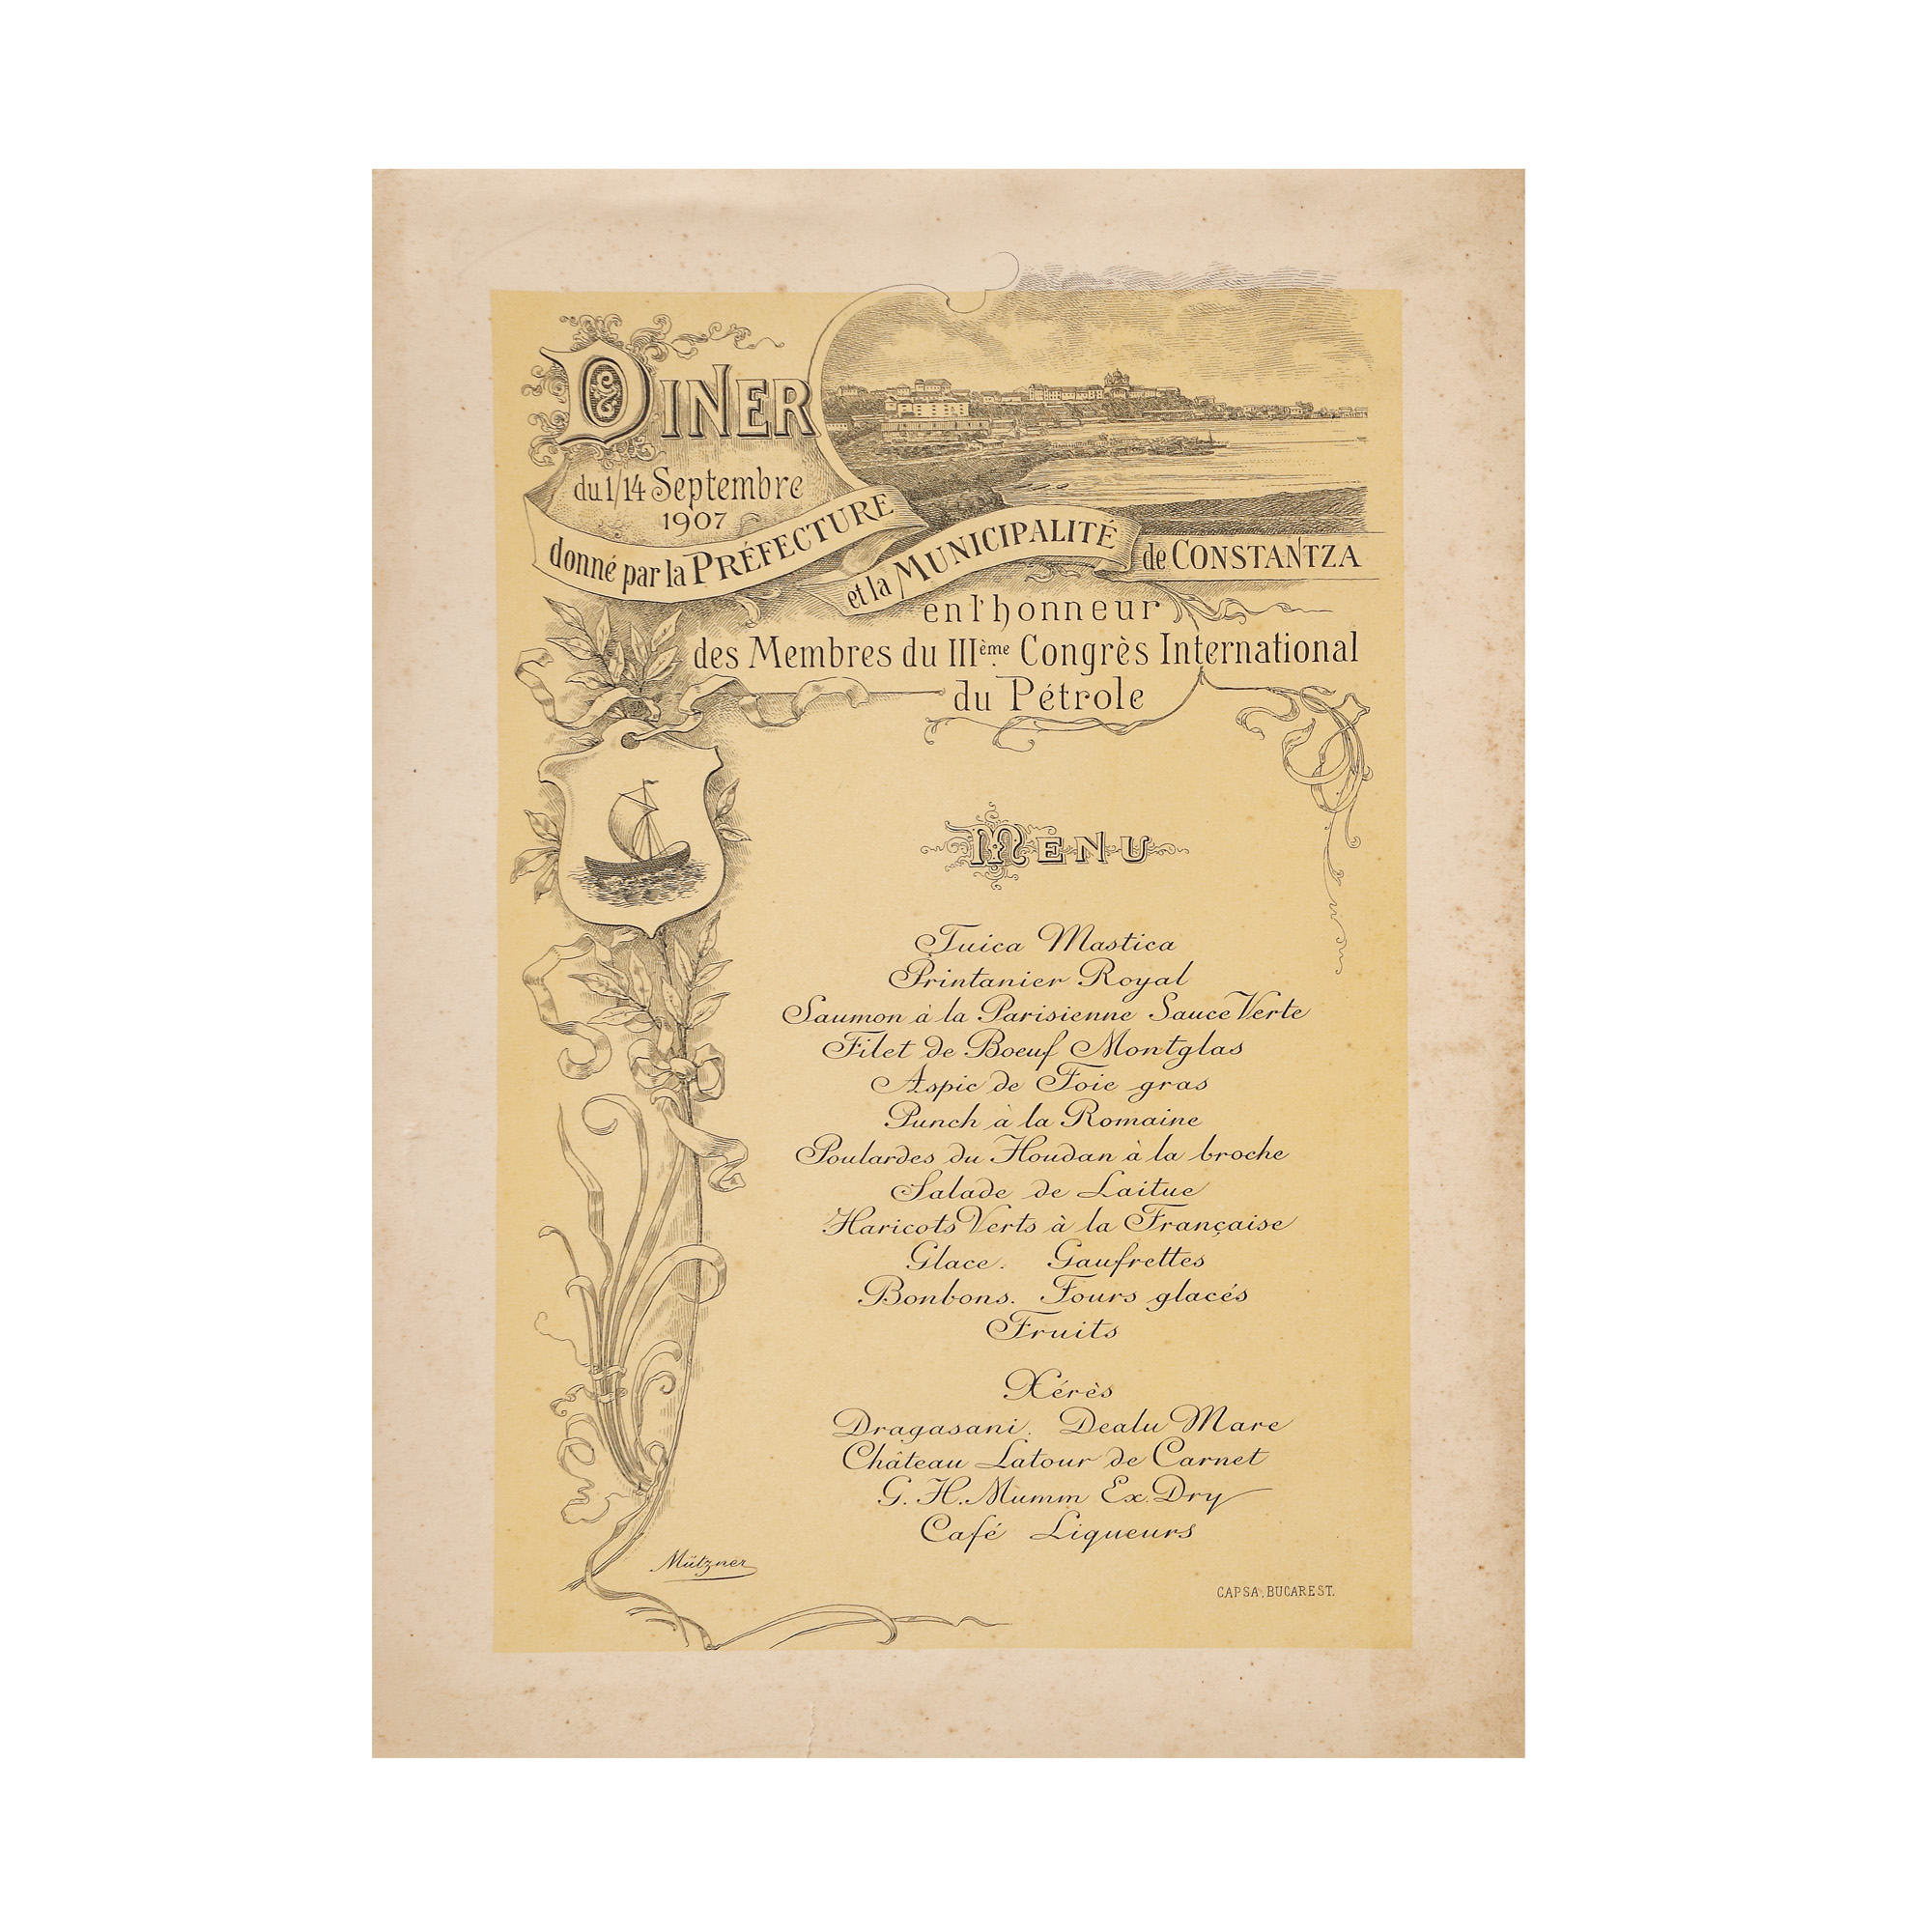 DINER
du 1/14 Septembre
1907
donné par la PRÉFECTURE
et la MUNICIPALITÉ
de CONSTANTZA
en l'honneur
des Membres du IIIème Congrès International
du Pétrole
MENU
Tuica Mastica
Printanier Royal
Saumon à la Parisienne Sauce Verte
Filet de Boeuf Montglas
Aspic de Foie gras
Punch à la Romaine
Poulardes du Houdan à la broche
Salade de Laitue
Haricots Verts à la Française
Glace. Gaufrettes
Bonbons. Fours glacés
Fruits
Xérès
Dragasani. Dealu Mare
Château Latour de Carnet
G. H. Mumm Ex. Dry
Café Liqueurs
Mützner
CAPSA, BUCAREST.